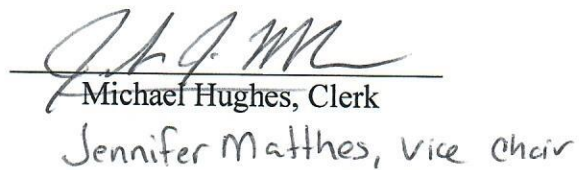 Michael Hughes, Clerk
Jennifer Matthes, Vice Chair